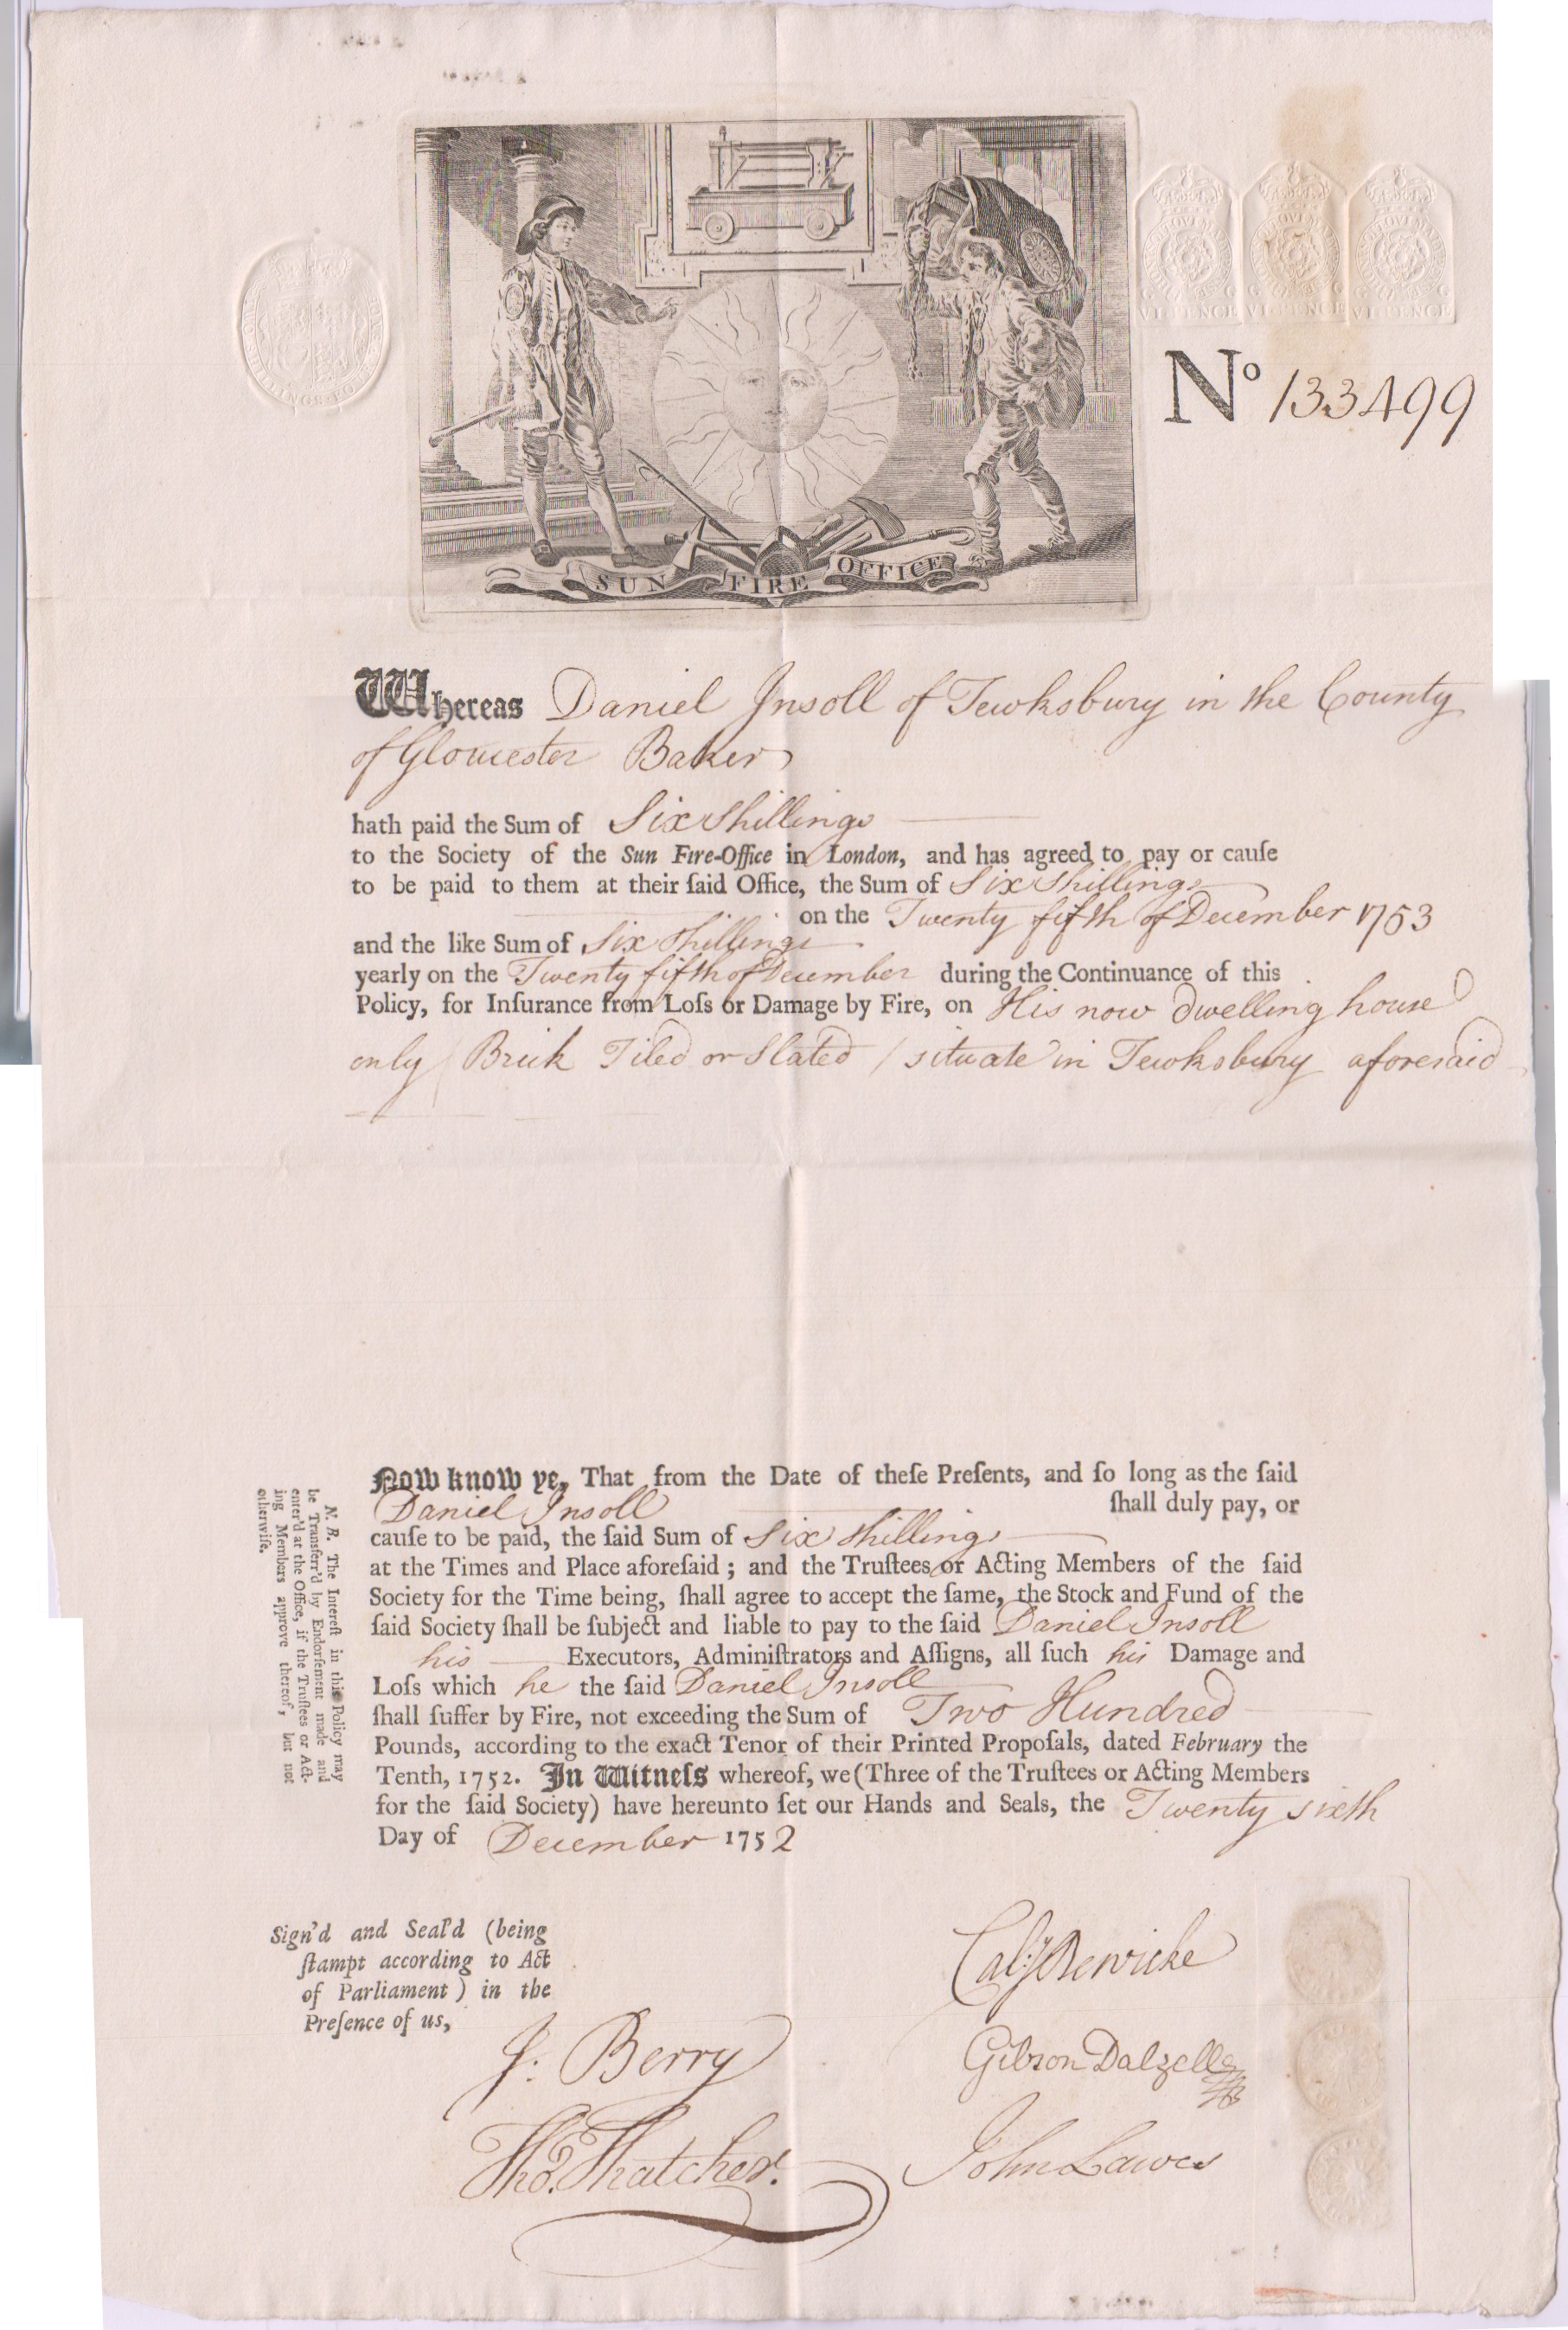 VI PENCE VI PENCE VI PENCE
No 133499
SUN FIRE OFFICE
Whereas Daniel Insoll of Tewksbury in the County
of Gloucester Baker
hath paid the Sum of Six Shillings
to the Society of the Sun Fire-Office in London, and has agreed to pay or cauſe
to be paid to them at their ſaid Office, the Sum of Six Shillings
on the Twenty fifth of December 1753
and the like Sum of Six Shillings
yearly on the Twenty fifth of December during the Continuance of this
Policy, for Inſurance from Loſs or Damage by Fire, on His now dwelling house
only / Brick Tiled or Slated / situate in Tewksbury aforesaid
Now know ye, That from the Date of theſe Preſents, and ſo long as the ſaid
Daniel Insoll ſhall duly pay, or
cauſe to be paid, the ſaid Sum of Six Shillings
at the Times and Place aforeſaid; and the Truſtees or Acting Members of the ſaid
Society for the Time being, ſhall agree to accept the ſame, the Stock and Fund of the
ſaid Society ſhall be ſubject and liable to pay to the ſaid Daniel Insoll
his Executors, Adminiſtrators and Aſſigns, all ſuch his Damage and
Loſs which he the ſaid Daniel Insoll
ſhall ſuffer by Fire, not exceeding the Sum of Two Hundred
Pounds, according to the exact Tenor of their Printed Propoſals, dated February the
Tenth, 1752. In Witneſs whereof, we (Three of the Truſtees or Acting Members
for the ſaid Society) have hereunto ſet our Hands and Seals, the Twenty sixth
Day of December 1752
N. B. The Intereſt in this Policy may
be Transferr'd by Endorſement made and
enter'd at the Office, if the Truſtees or Act-
ing Members approve thereof, but not
otherwiſe.
Sign'd and Seal'd (being
ſtampt according to Act
of Parliament) in the
Preſence of us,
J: Berry
Tho. Thatcher.
Berwicke
Gibson Dalzell
John Lawes